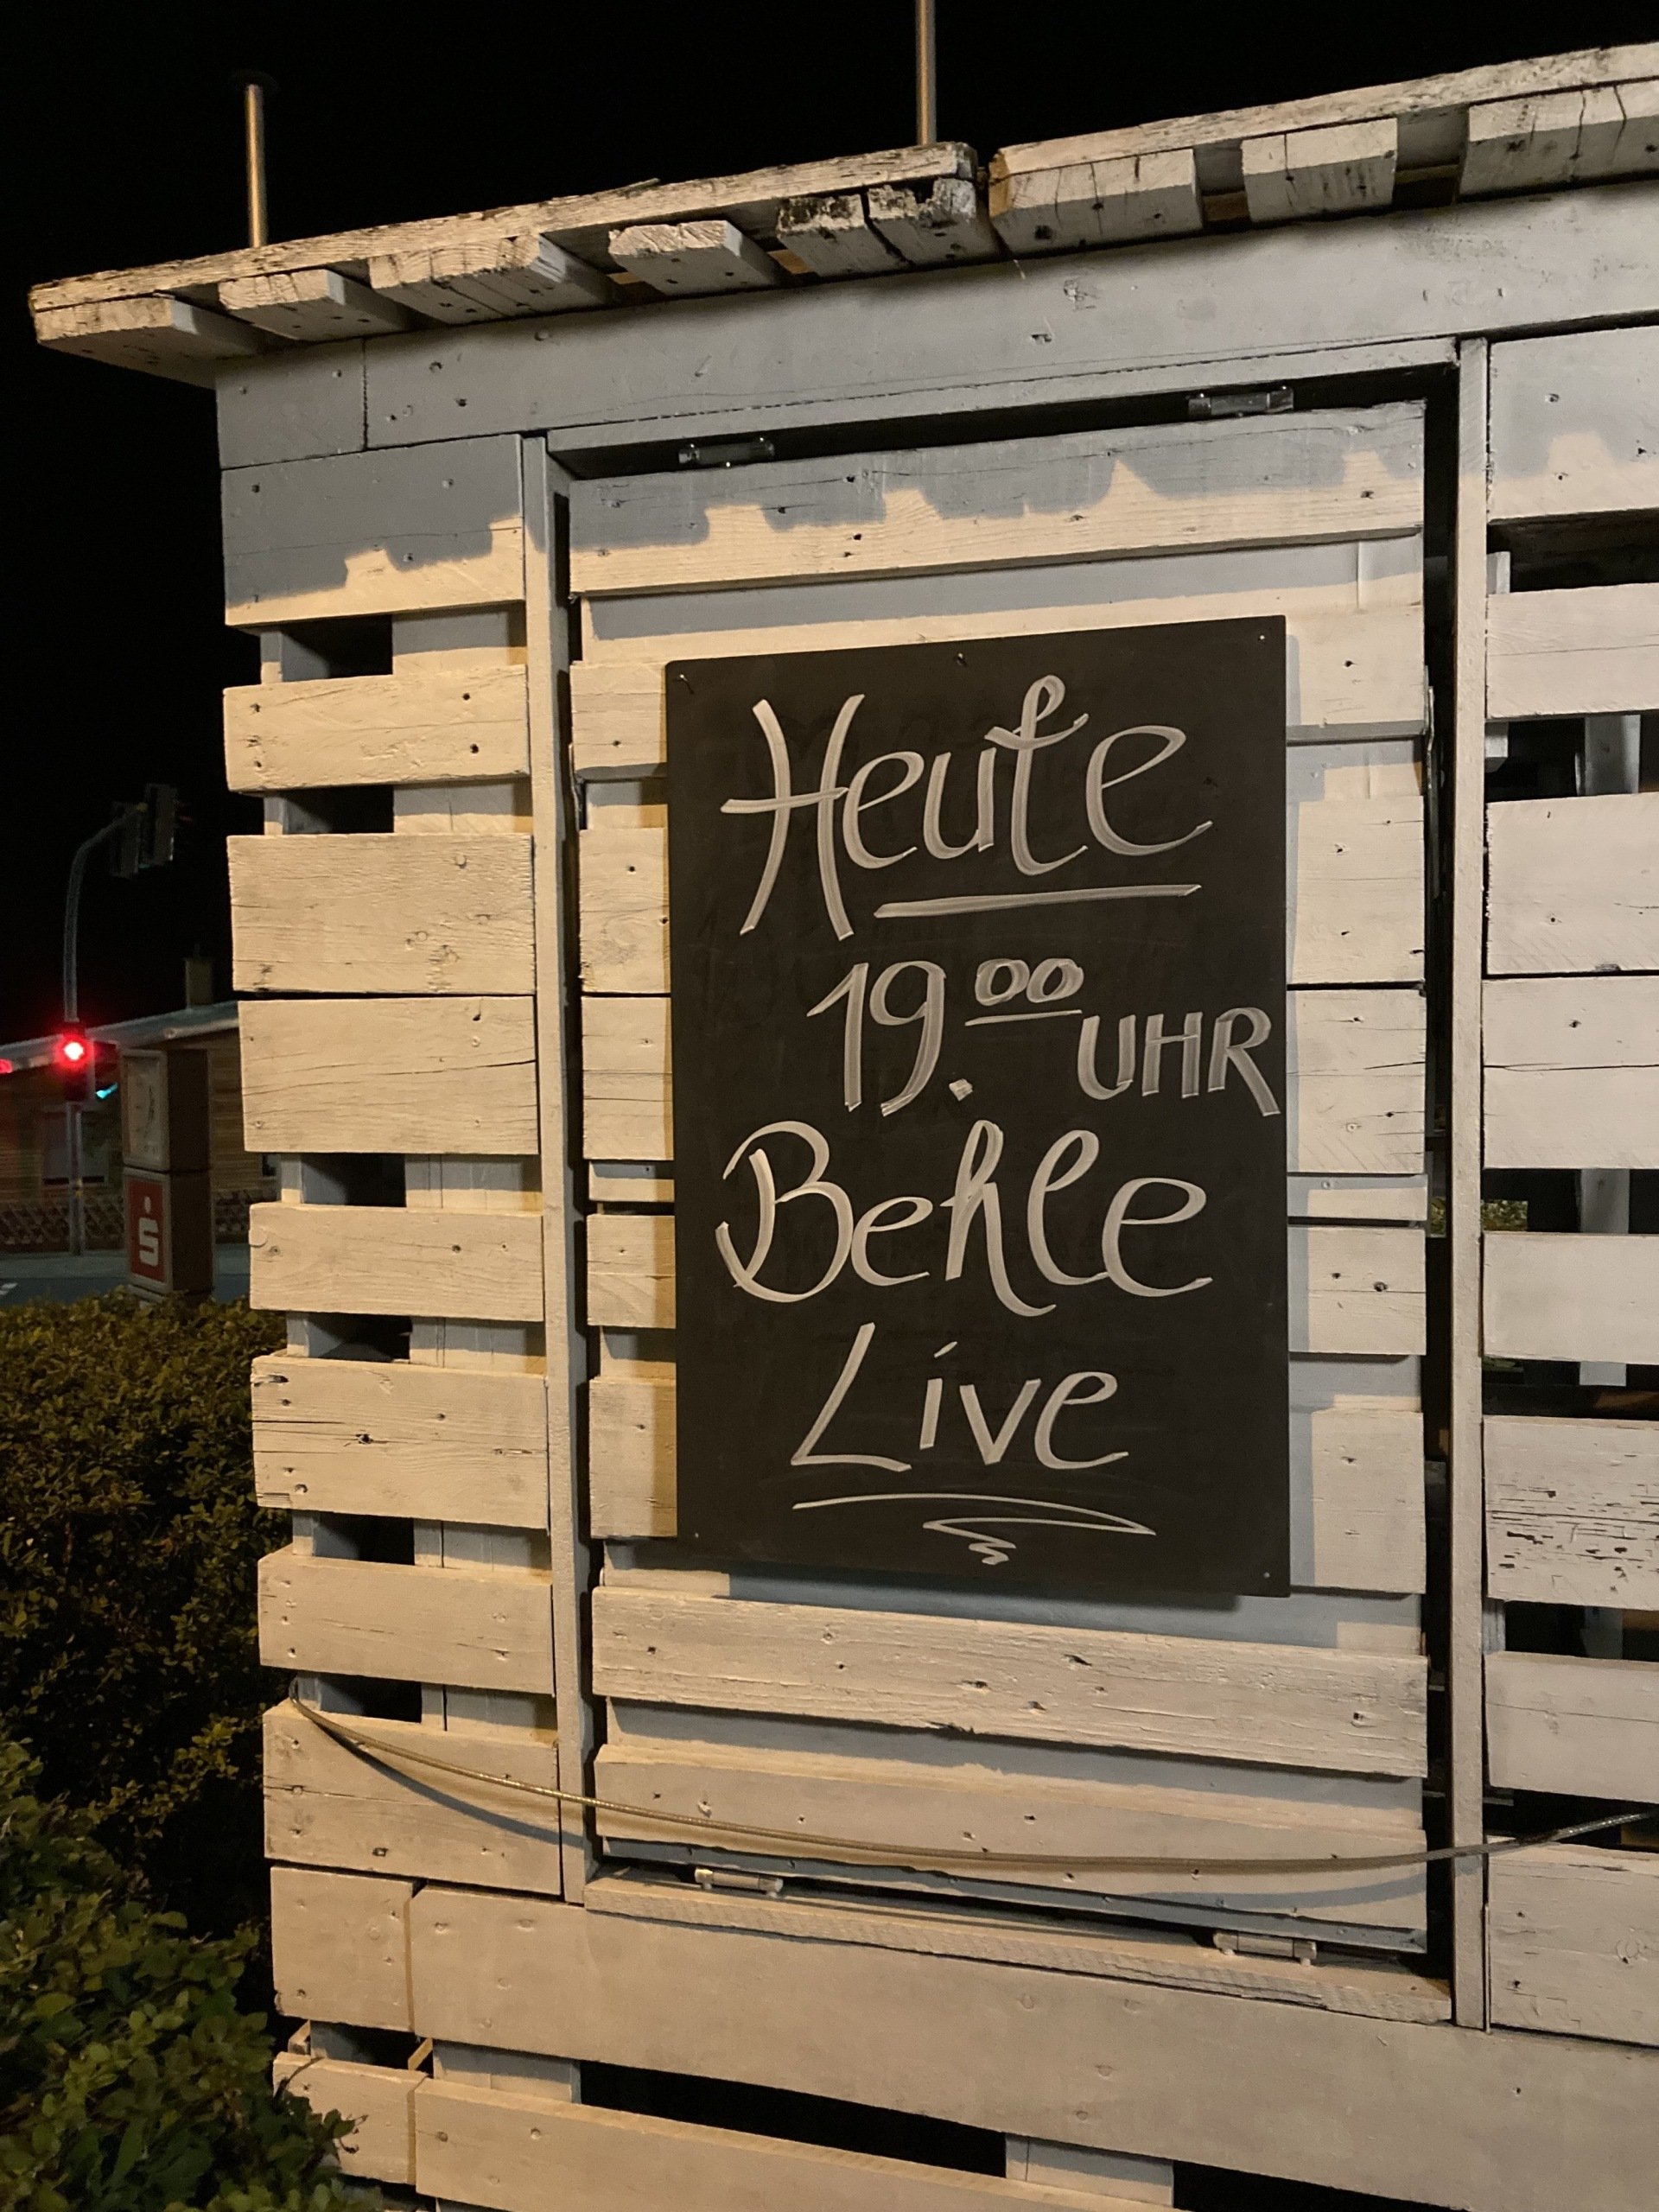 Heute
19.00 UHR
Behle
Live
S